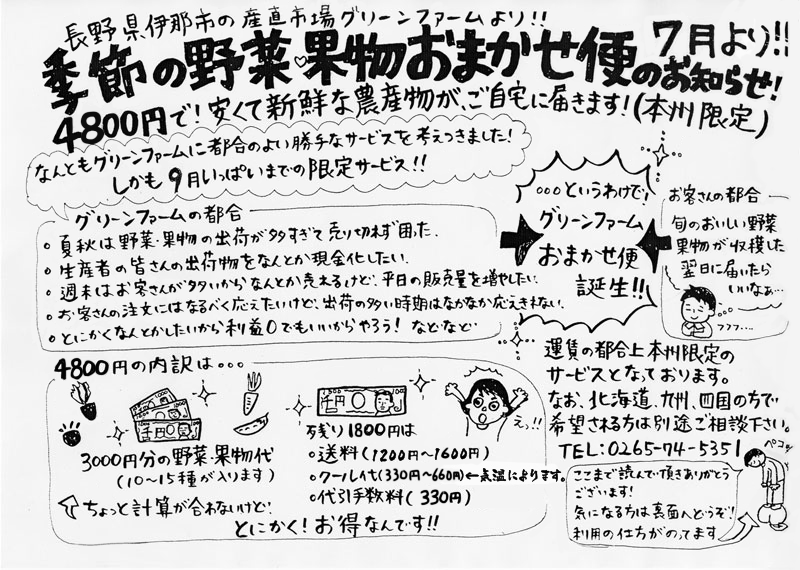 長野県伊那市の産直市場グリーンファームより!!
季節の野菜♡果物おまかせ便のお知らせ!
7月より!!
4800円で!安くて新鮮な農産物が、ご自宅に届きます!(本州限定)
なんともグリーンファームに都合のよい勝手なサービスを考えつきました!
しかも9月いっぱいまでの限定サービス!!
グリーンファームの都合
・夏秋は野菜・果物の出荷が多すぎて売り切れず困った.
・生産者の皆さんの出荷物をなんとか現金化したい.
・週末はお客さんが多いからなんとか売れるけど、平日の販売量を増やしたい.
・お客さんの注文にはなるべく応えたいけど、出荷の多い時期はなかなか応えきれない.
・とにかくなんとかしたいから利益0でもいいからやろう! などなど
...というわけで!
グリーンファーム
おまかせ便
誕生!!
お客さんの都合
旬のおいしい野菜
果物が収穫した
翌日に届いたら
いいなぁ...
フフフ....
運賃の都合上本州限定の
サービスとなっております。
なお、北海道、九州、四国の方で
希望される方は別途ご相談下さい。
TEL:0265-74-5351
4800円の内訳は...
3000円分の野菜・果物代
(10〜15種が入ります)
ちょっと計算が合わないけど
残り1800円は
・送料(1200円〜1600円)
・クール代(330円〜660円)←気温によります。
・代引手数料(330円)
えっ!!
とにかく!お得なんです!!
ペコッ
ここまで読んで頂きありがとう
ございます!
気になる方は裏面へどうぞ!
利用の仕方がのってます